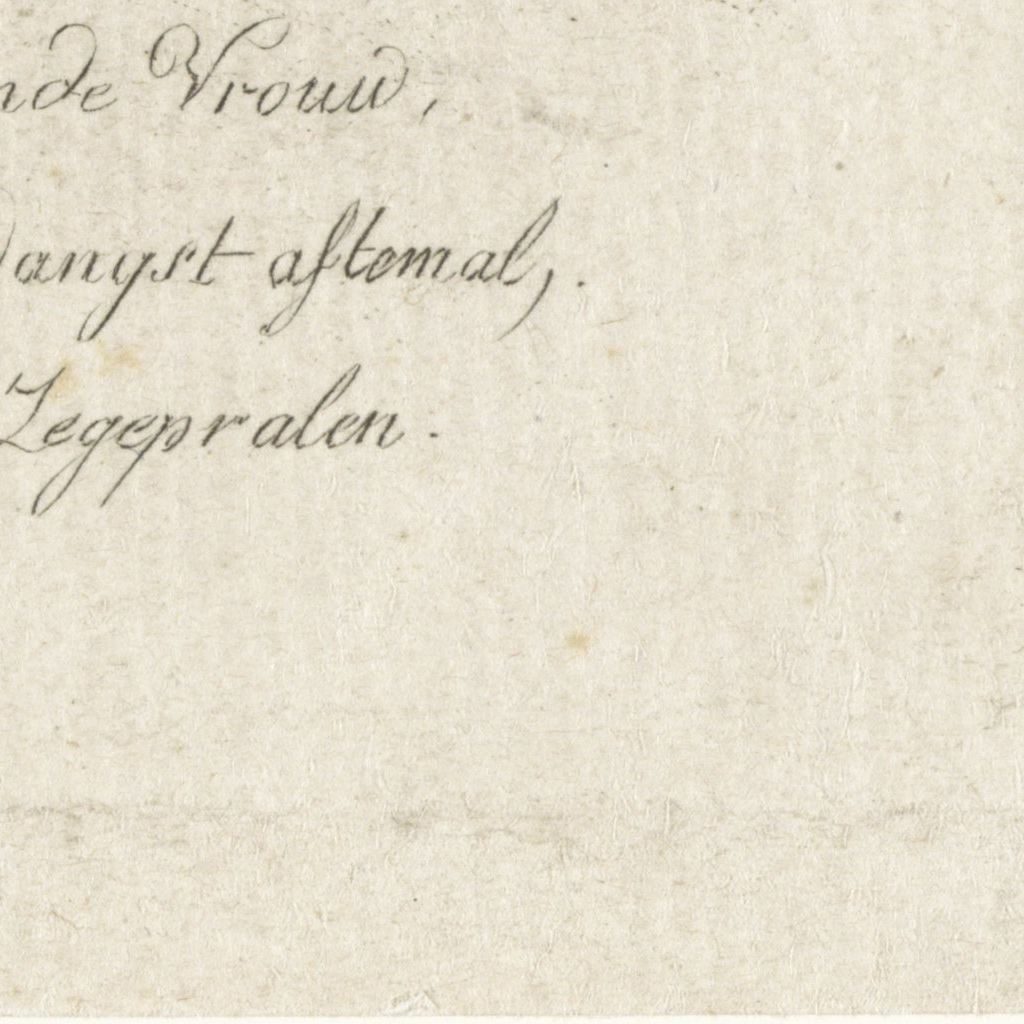 nde Vrouw,
dangst aftemal,.
Zegepralen.